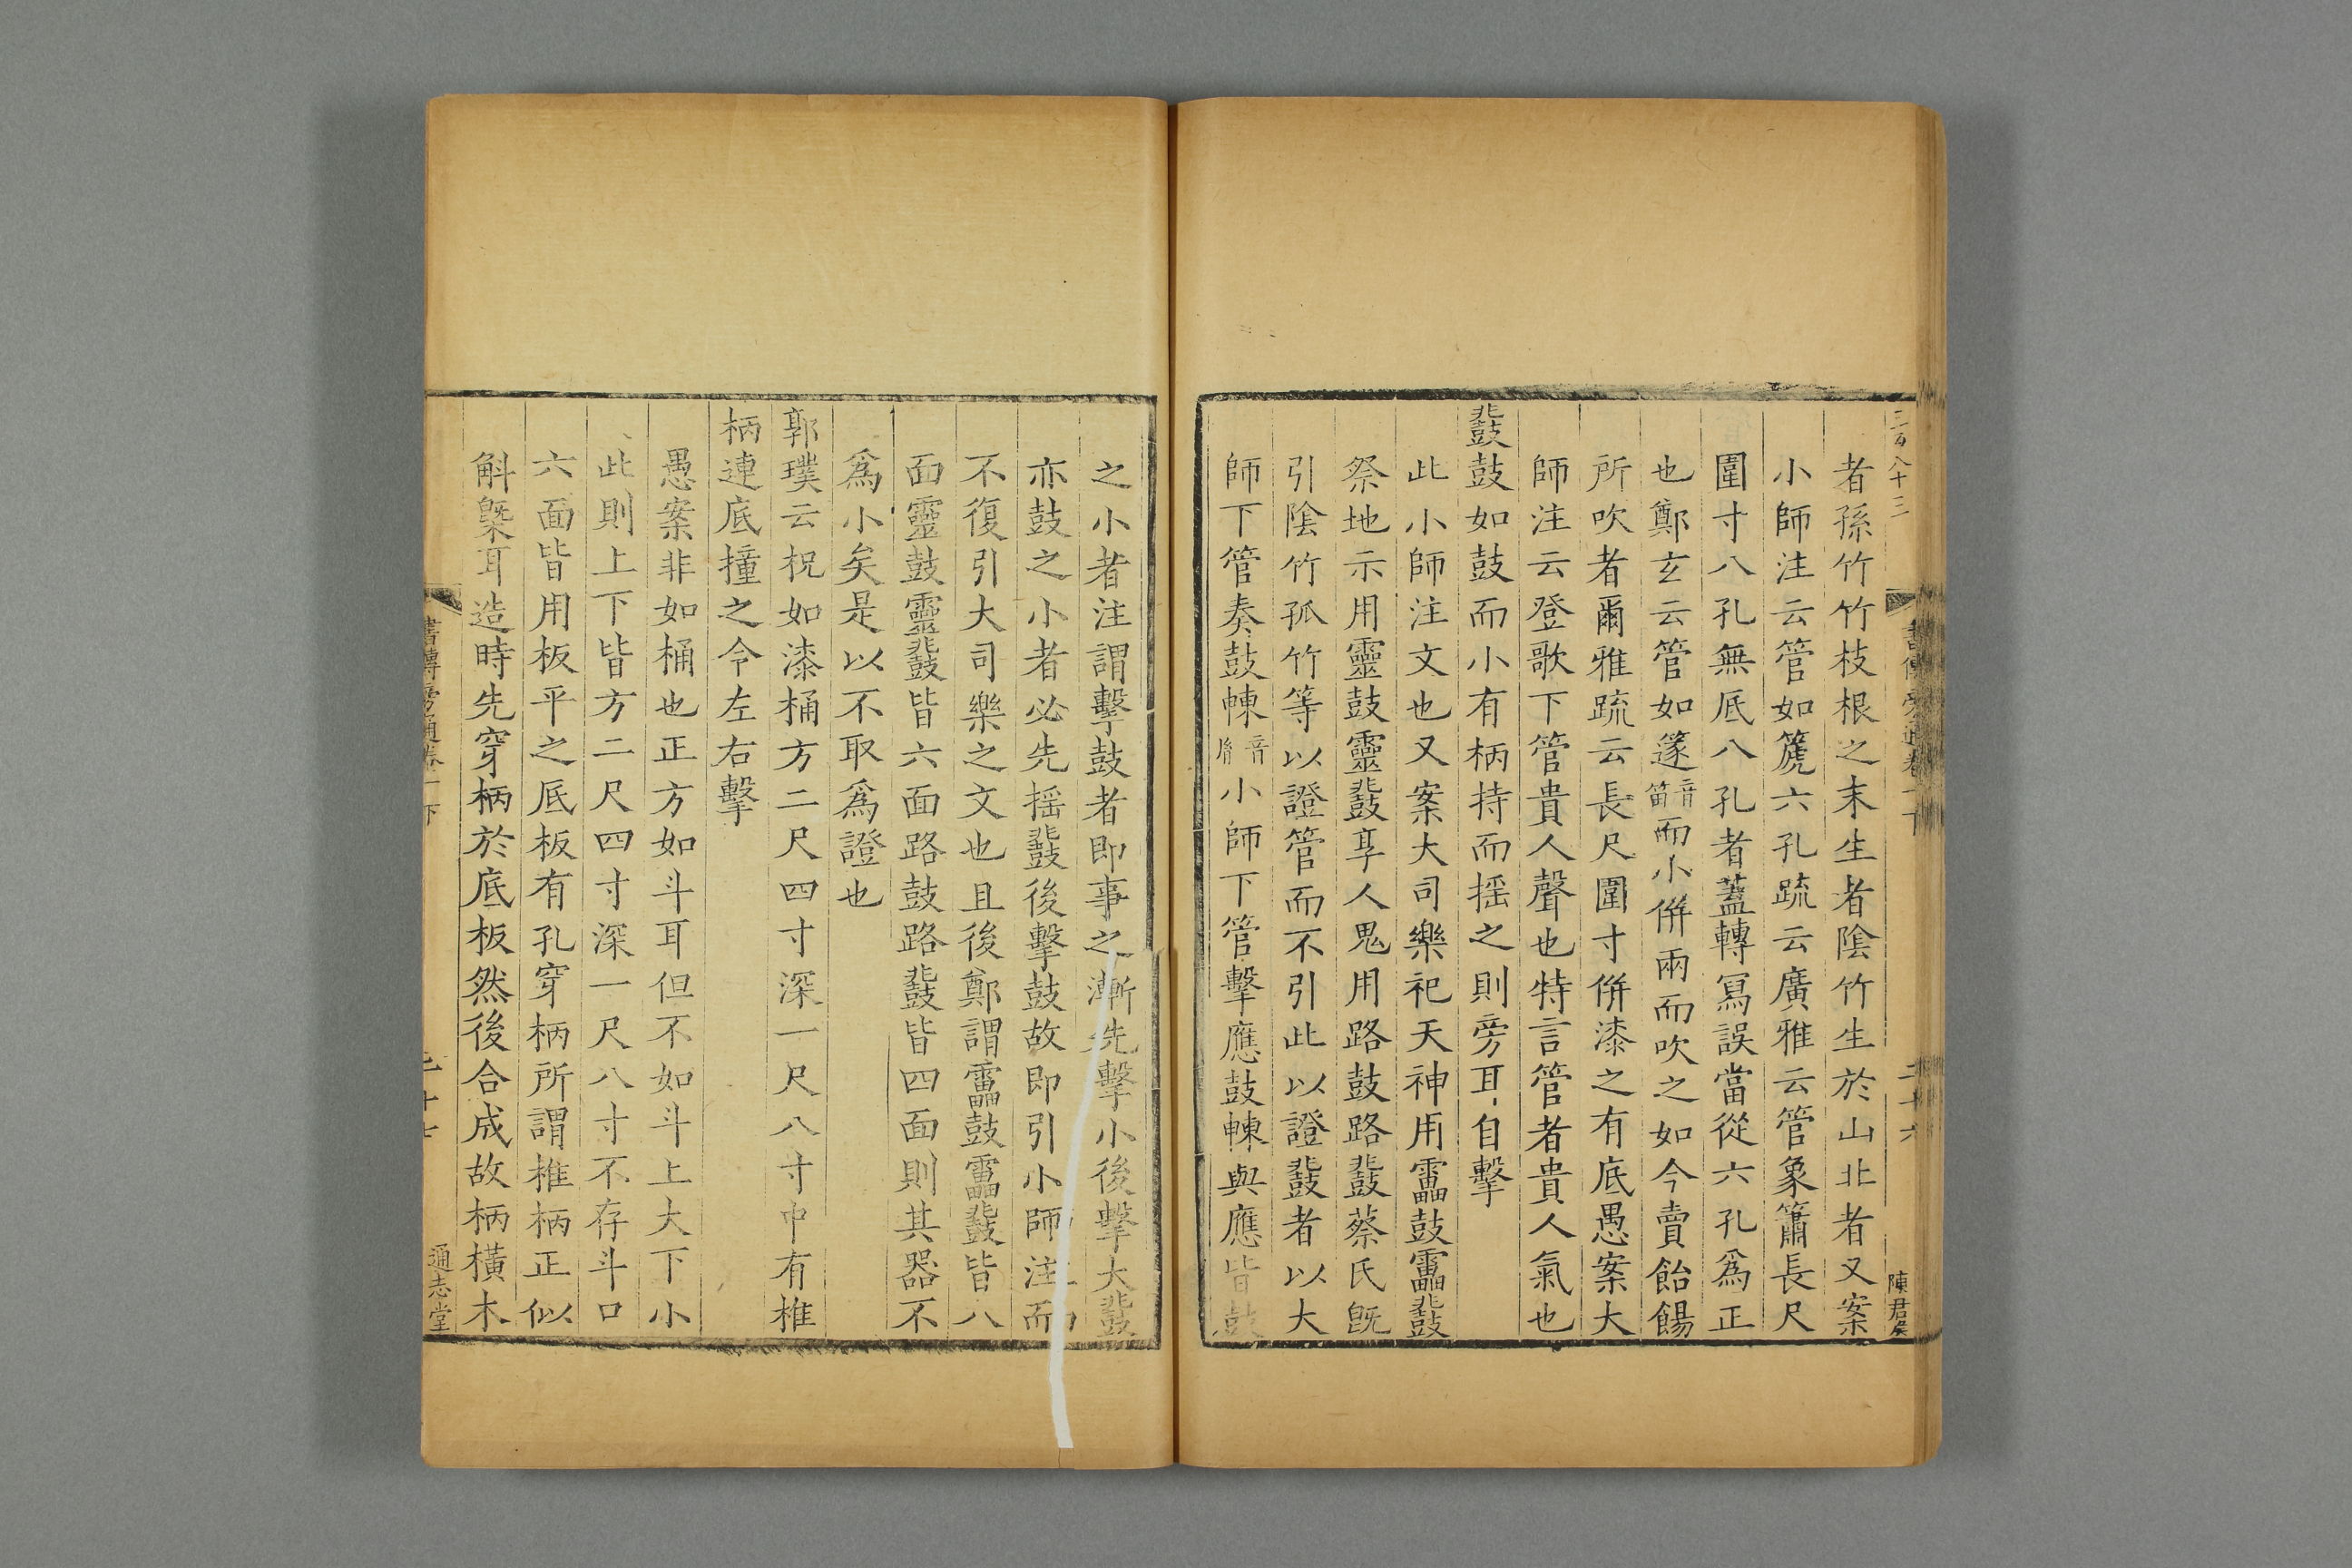 三百八十三
者孫竹竹枝根之末生者陰竹生於山北者又案
小師注云管如篪六孔疏云廣雅云管象簫長尺
圍寸八孔無底八孔者蓋轉寫誤當從六孔爲正
也鄭玄云管如篴音笛而小併兩而吹之如今賣飴餳
所吹者爾雅疏云長尺圍寸併漆之有底愚案大
師注云登歌下管貴人聲也特言管者貴人氣也
鼗鼓如鼓而小有柄持而揺之則旁耳自擊
此小師注文也又案大司樂祀天神用靁鼓靁鼗
祭地示用靈鼓靈鼗享人鬼用路鼓路鼗蔡氏既
引陰竹孤竹等以證管而不引此以證鼗者以大
師下管奏鼓朄音胤小師下管擊應鼓朄與應皆鼓
之小者注謂擊鼓者即事之漸先擊小後擊大鼗
亦鼓之小者必先揺鼗後擊鼓故即引小師注而
不復引大司樂之文也且後鄭謂靁鼓靁鼗皆八
面靈鼓靈鼗皆六面路鼓路鼗皆四面則其器不
爲小矣是以不取爲證也
郭璞云柷如漆桶方二尺四寸深一尺八寸中有椎
柄連底撞之令左右擊
愚案非如桶也正方如斗耳但不如斗上大下小
此則上下皆方二尺四寸深一尺八寸不存斗口
六面皆用板平之底板有孔穿柄所謂椎柄正似
斛槩耳造時先穿柄於底板然後合成故柄橫木
書傳旁通卷一下
二十七
通志堂